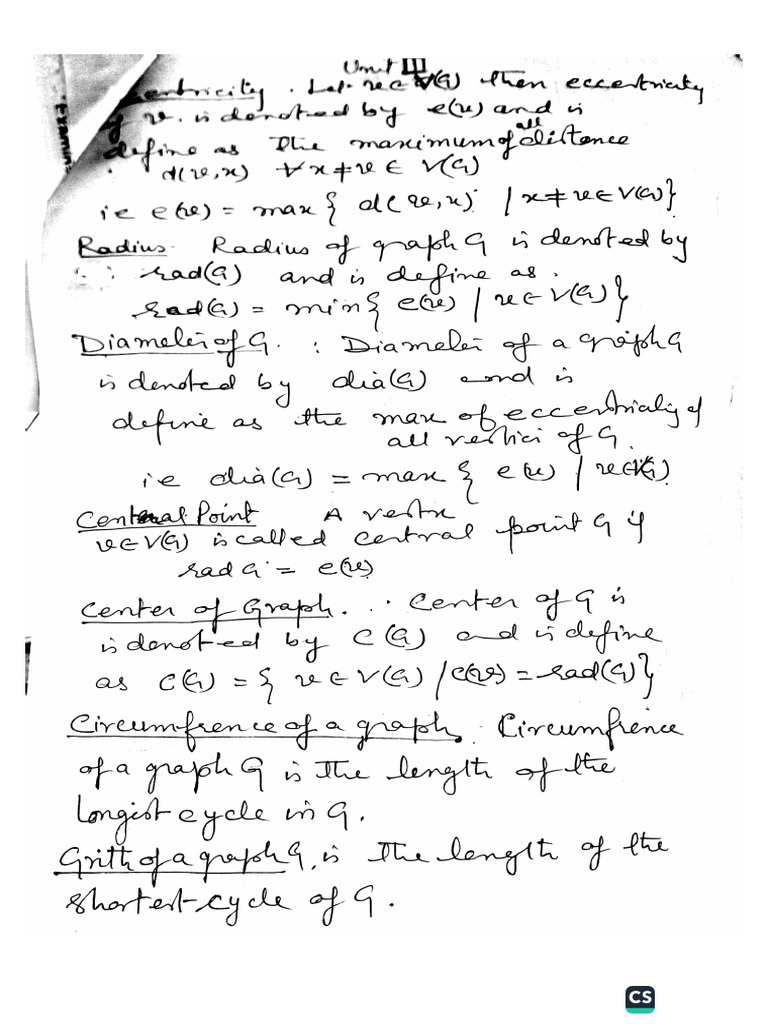 Unit III
entricity. Let v ∈ V(G) then eccentricity
of v. is denoted by e(v) and is
define as the maximum of all distence
d(v,x) ∀ x ≠ v ∈ V(G)
ie e(v) = max { d(v,x) / x ≠ v ∈ V(G)}
Radius. Radius of graph G is denoted by
rad(G) and is define as.
rad(G) = min { e(v) / v ∈ V(G)}
Diameter of G. : Diameter of a graph G
is denoted by dia(G) and is
define as the max of eccentriality of
all vertici of G.
ie dia(G) = max { e(v) / v ∈ V(G)
Centeral Point A vertx
v ∈ V(G) is called central point G if
rad G = e(v)
Center of Graph. Center of G is
is denoted by C(G) and is define
as C(G) = { v ∈ V(G) / e(v) = rad(G)}
Circumfrence of a graph. Circumfrence
of a graph G is the length of the
Longist cycle in G.
Grith of a graph G, is the length of the
shortest cycle of G.
CS